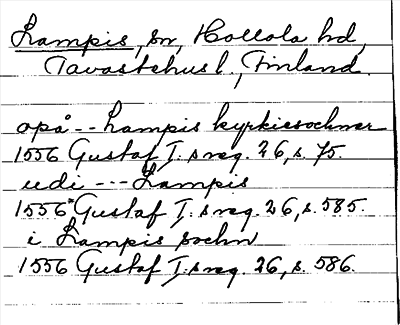 Lampis, sn, Hollola hd,
Tavastehus l., Finland.
opå -- Lampis kyrkiesochner
1556 Gustaf I:s reg. 26, s. 75.
udi --- Lampis
1556 Gustaf I:s reg. 26, s. 585.
i Lampis sochn
1556 Gustaf I:s reg. 26, s. 586.